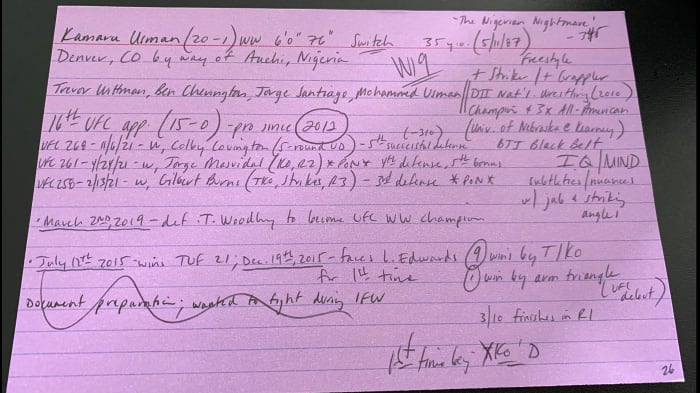 "The Nigerian Nightmare" -345
Kamaru Usman (20-1) WW 6'0" 76" Switch 35 y.o. (5/11/87)
Denver, CO by way of Auchi, Nigeria
W19
Freestyle
+ Striker / + Grappler
Trevor Wittman, Ben Cherington, Jorge Santiago, Mohammed Usman
DII Nat'l Wrestling (2010)
Champion & 3x All-American
(Univ. of Nebraska @ Kearney)
BJJ Black Belt
IQ/MIND
subtleties/nuances
w/ jab & striking
angles
16th UFC app. (15-0) - pro since 2012
(-310)
UFC 268 - 11/6/21 - W, Colby Covington (5-round UD) - 5th successful defense
UFC 261 - 4/24/21 - W, Jorge Masvidal (KO, R2) *PoN* 4th defense, 5th bonus
UFC 258 - 2/13/21 - W, Gilbert Burns (TKO, Strikes, R3) - 3rd defense *PoN*
• March 2nd, 2019 - def. T. Woodley to become UFC WW champion
• July 12th 2015 - wins TUF 21; Dec. 19th, 2015 - faces L. Edwards
for 1st time
9 wins by T/KO
1 win by arm triangle
(UFC debut)
Document preparation; wanted to fight during IFW
3/10 finishes in R1
1st time being KO'D
26